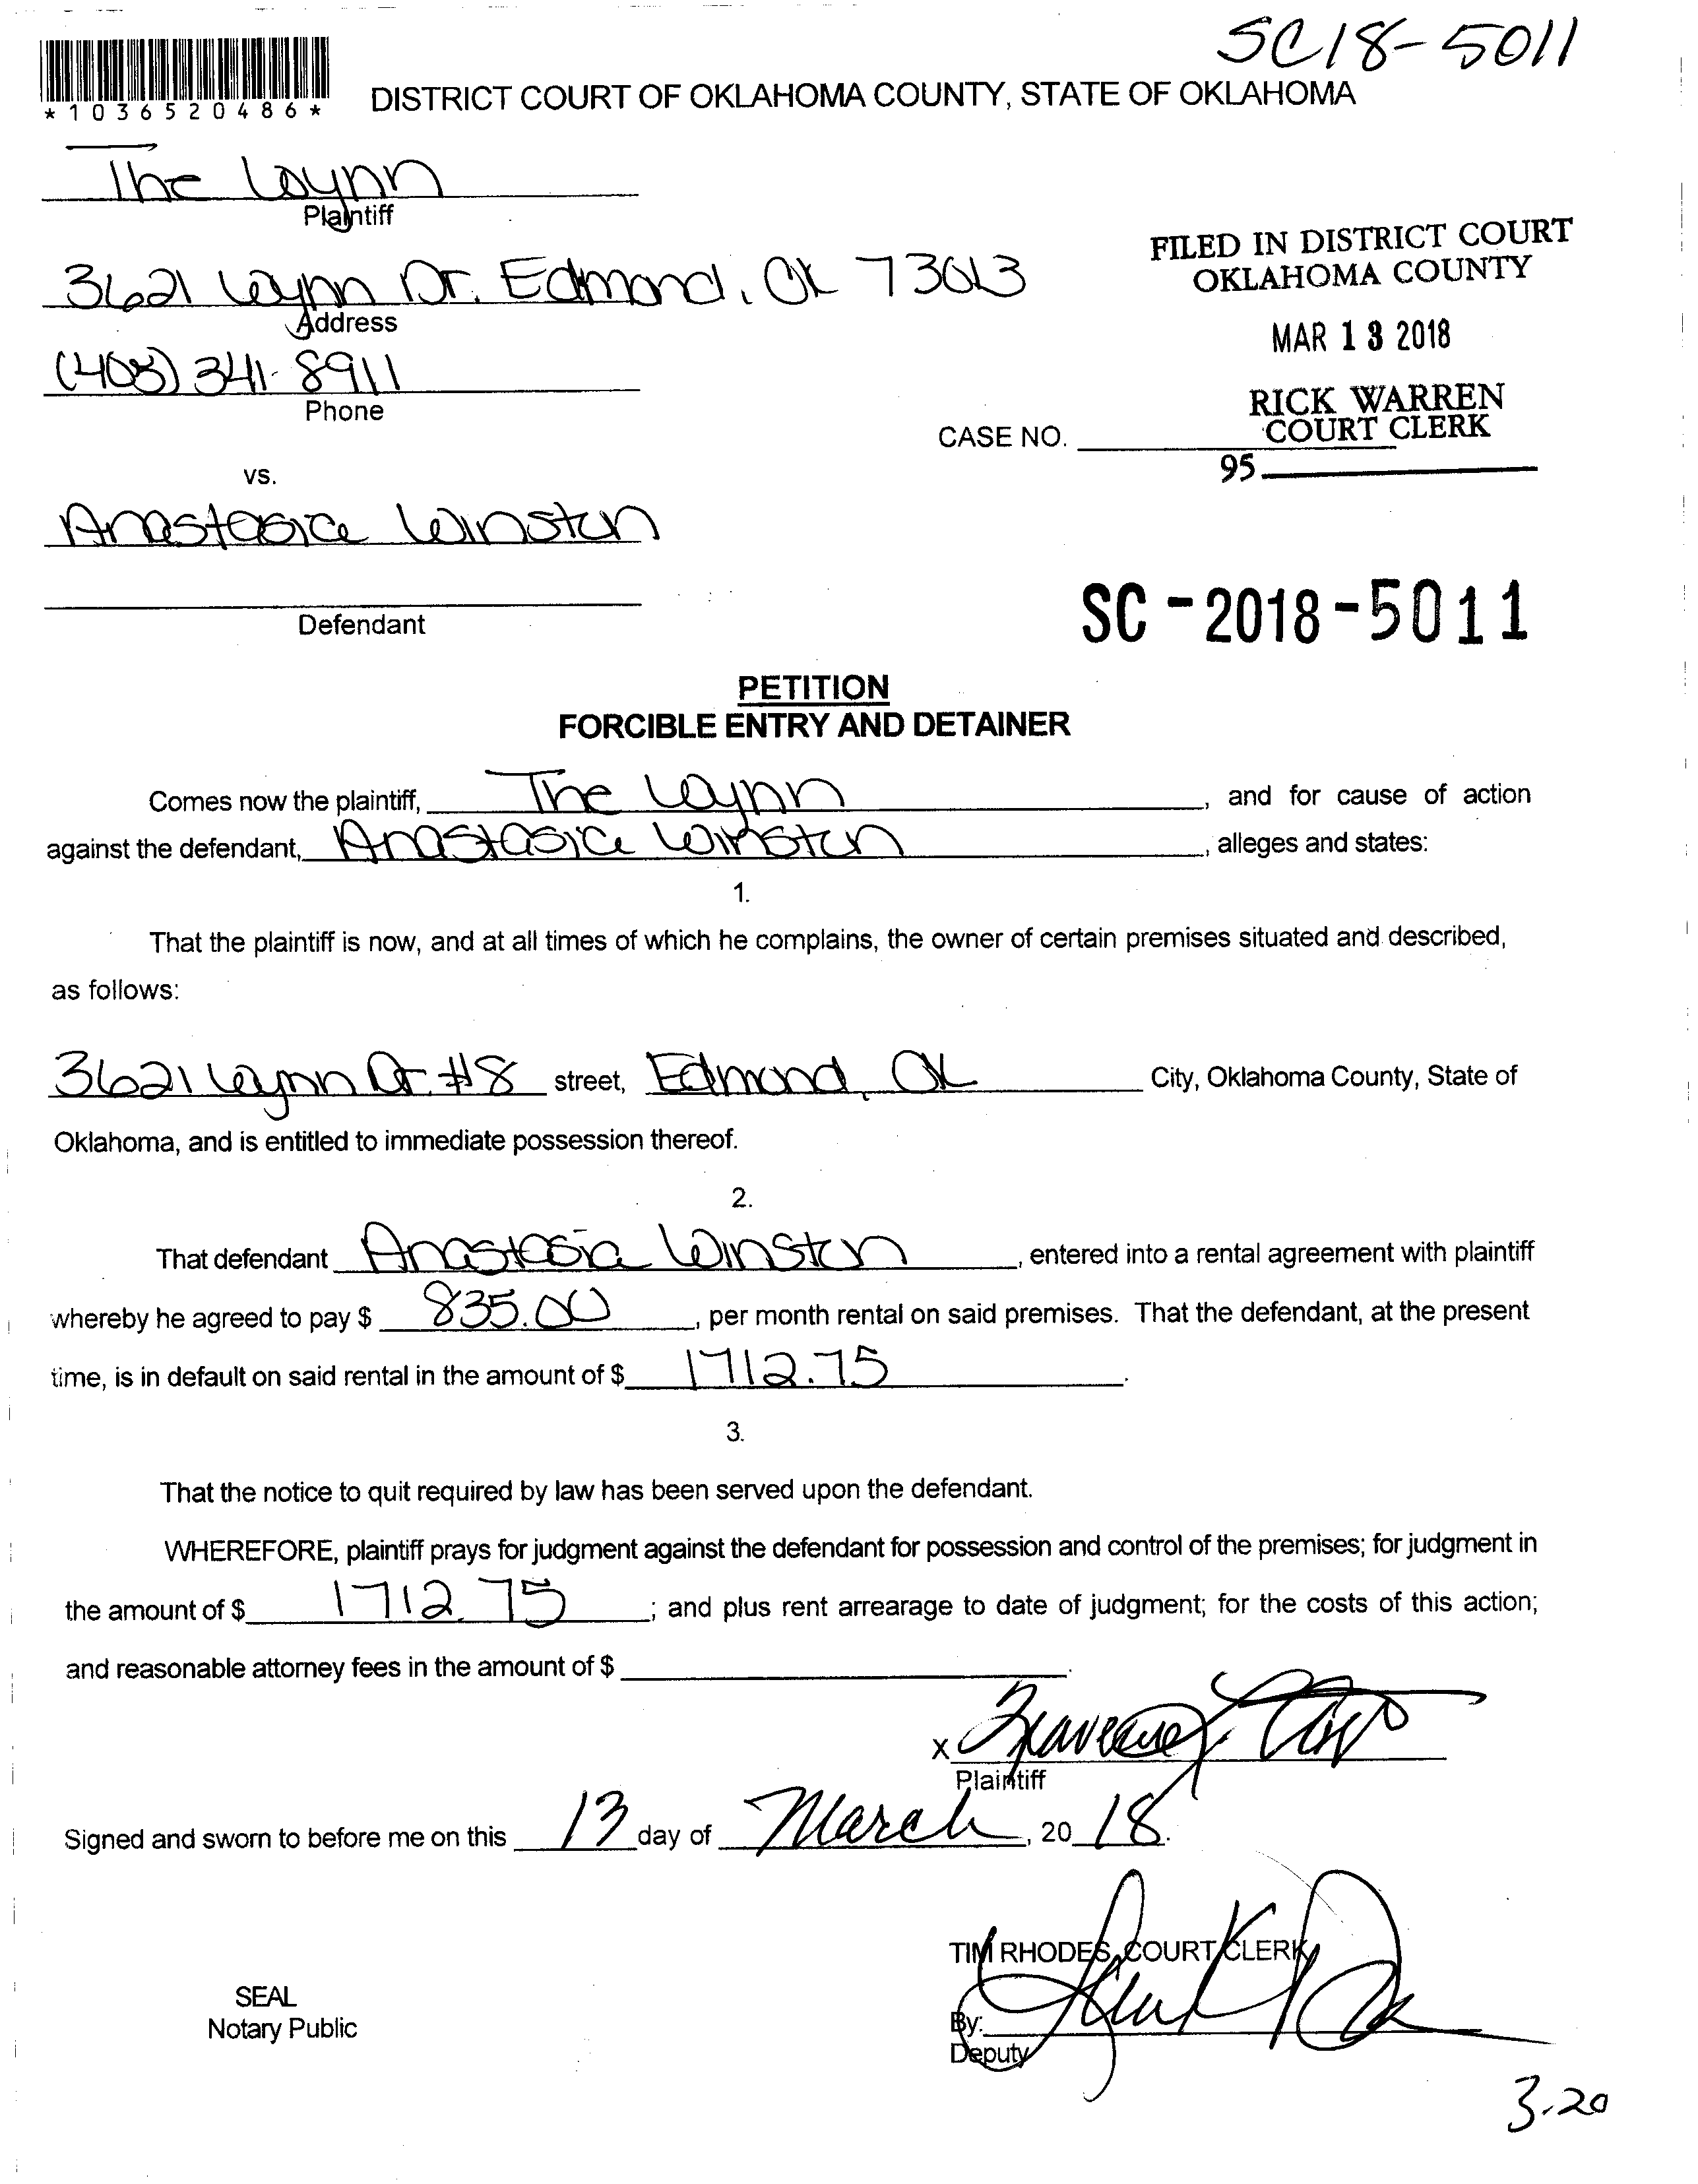 SC18-5011
*1036520486*
DISTRICT COURT OF OKLAHOMA COUNTY, STATE OF OKLAHOMA
The Wynn
Plaintiff
3621 Wynn Dr. Edmond, OK 73013
Address
(405) 341-8911
Phone
FILED IN DISTRICT COURT
OKLAHOMA COUNTY
MAR 13 2018
RICK WARREN
COURT CLERK
CASE NO.
95
vs.
Anastasia Winston
Defendant
SC-2018-5011
PETITION
FORCIBLE ENTRY AND DETAINER
Comes now the plaintiff, The Wynn, and for cause of action
against the defendant, Anastasia Winston, alleges and states:
1.
That the plaintiff is now, and at all times of which he complains, the owner of certain premises situated and described,
as follows:
3621 Wynn Dr. #8 street, Edmond, OK City, Oklahoma County, State of
Oklahoma, and is entitled to immediate possession thereof.
2.
That defendant Anastasia Winston, entered into a rental agreement with plaintiff
whereby he agreed to pay $ 835.00, per month rental on said premises. That the defendant, at the present
time, is in default on said rental in the amount of $ 1712.75.
3.
That the notice to quit required by law has been served upon the defendant.
WHEREFORE, plaintiff prays for judgment against the defendant for possession and control of the premises; for judgment in
the amount of $ 1712.75; and plus rent arrearage to date of judgment; for the costs of this action;
and reasonable attorney fees in the amount of $.
X
Plaintiff
Signed and sworn to before me on this 13 day of March, 2018.
TIM RHODES, COURT CLERK
SEAL
Notary Public
By:
Deputy
3-20